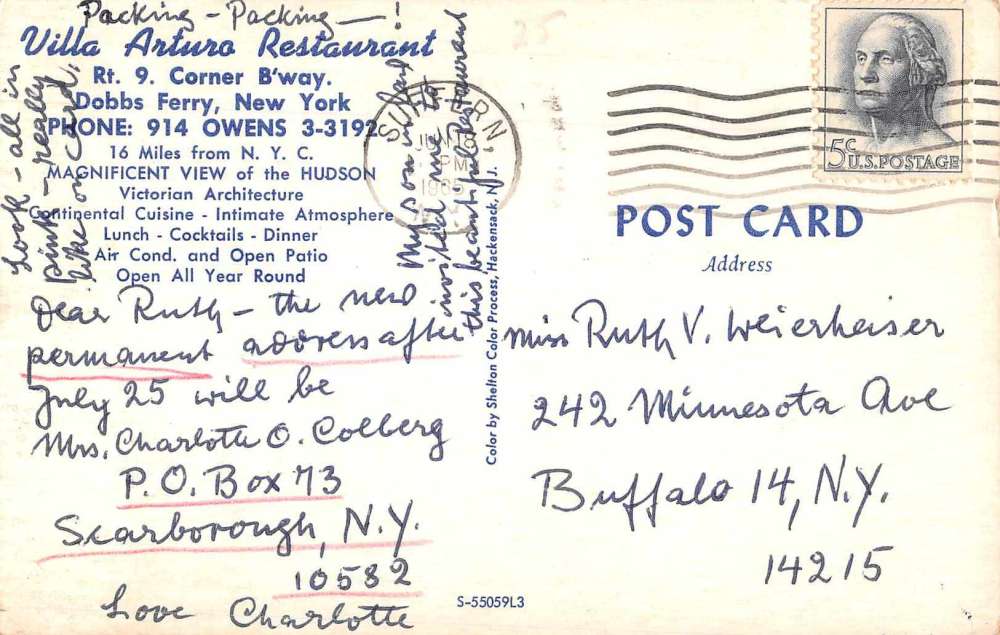 Packing - Packing - !
Villa Arturo Restaurant
Rt. 9. Corner B'way.
Dobbs Ferry, New York
PHONE: 914 OWENS 3-3192
16 Miles from N. Y. C.
MAGNIFICENT VIEW of the HUDSON
Victorian Architecture
Continental Cuisine - Intimate Atmosphere
Lunch - Cocktails - Dinner
Air Cond. and Open Patio
Open All Year Round
Look - all in
pink - really
like on card.
My son in law
invited me to
this beautiful restaurant
Dear Ruth - the new
permanent address after
July 25 will be
Mrs. Charlotte O. Colberg
P.O. Box 73
Scarborough, N.Y.
10582
Love Charlotte
Color by Shelton Color Process, Hackensack, N. J.
S-55059L3
25
SUFFERN,
PM
1965
5c U.S. POSTAGE
POST CARD
Address
Miss Ruth V. Weierheiser
242 Minnesota Ave
Buffalo 14, N.Y.
14215